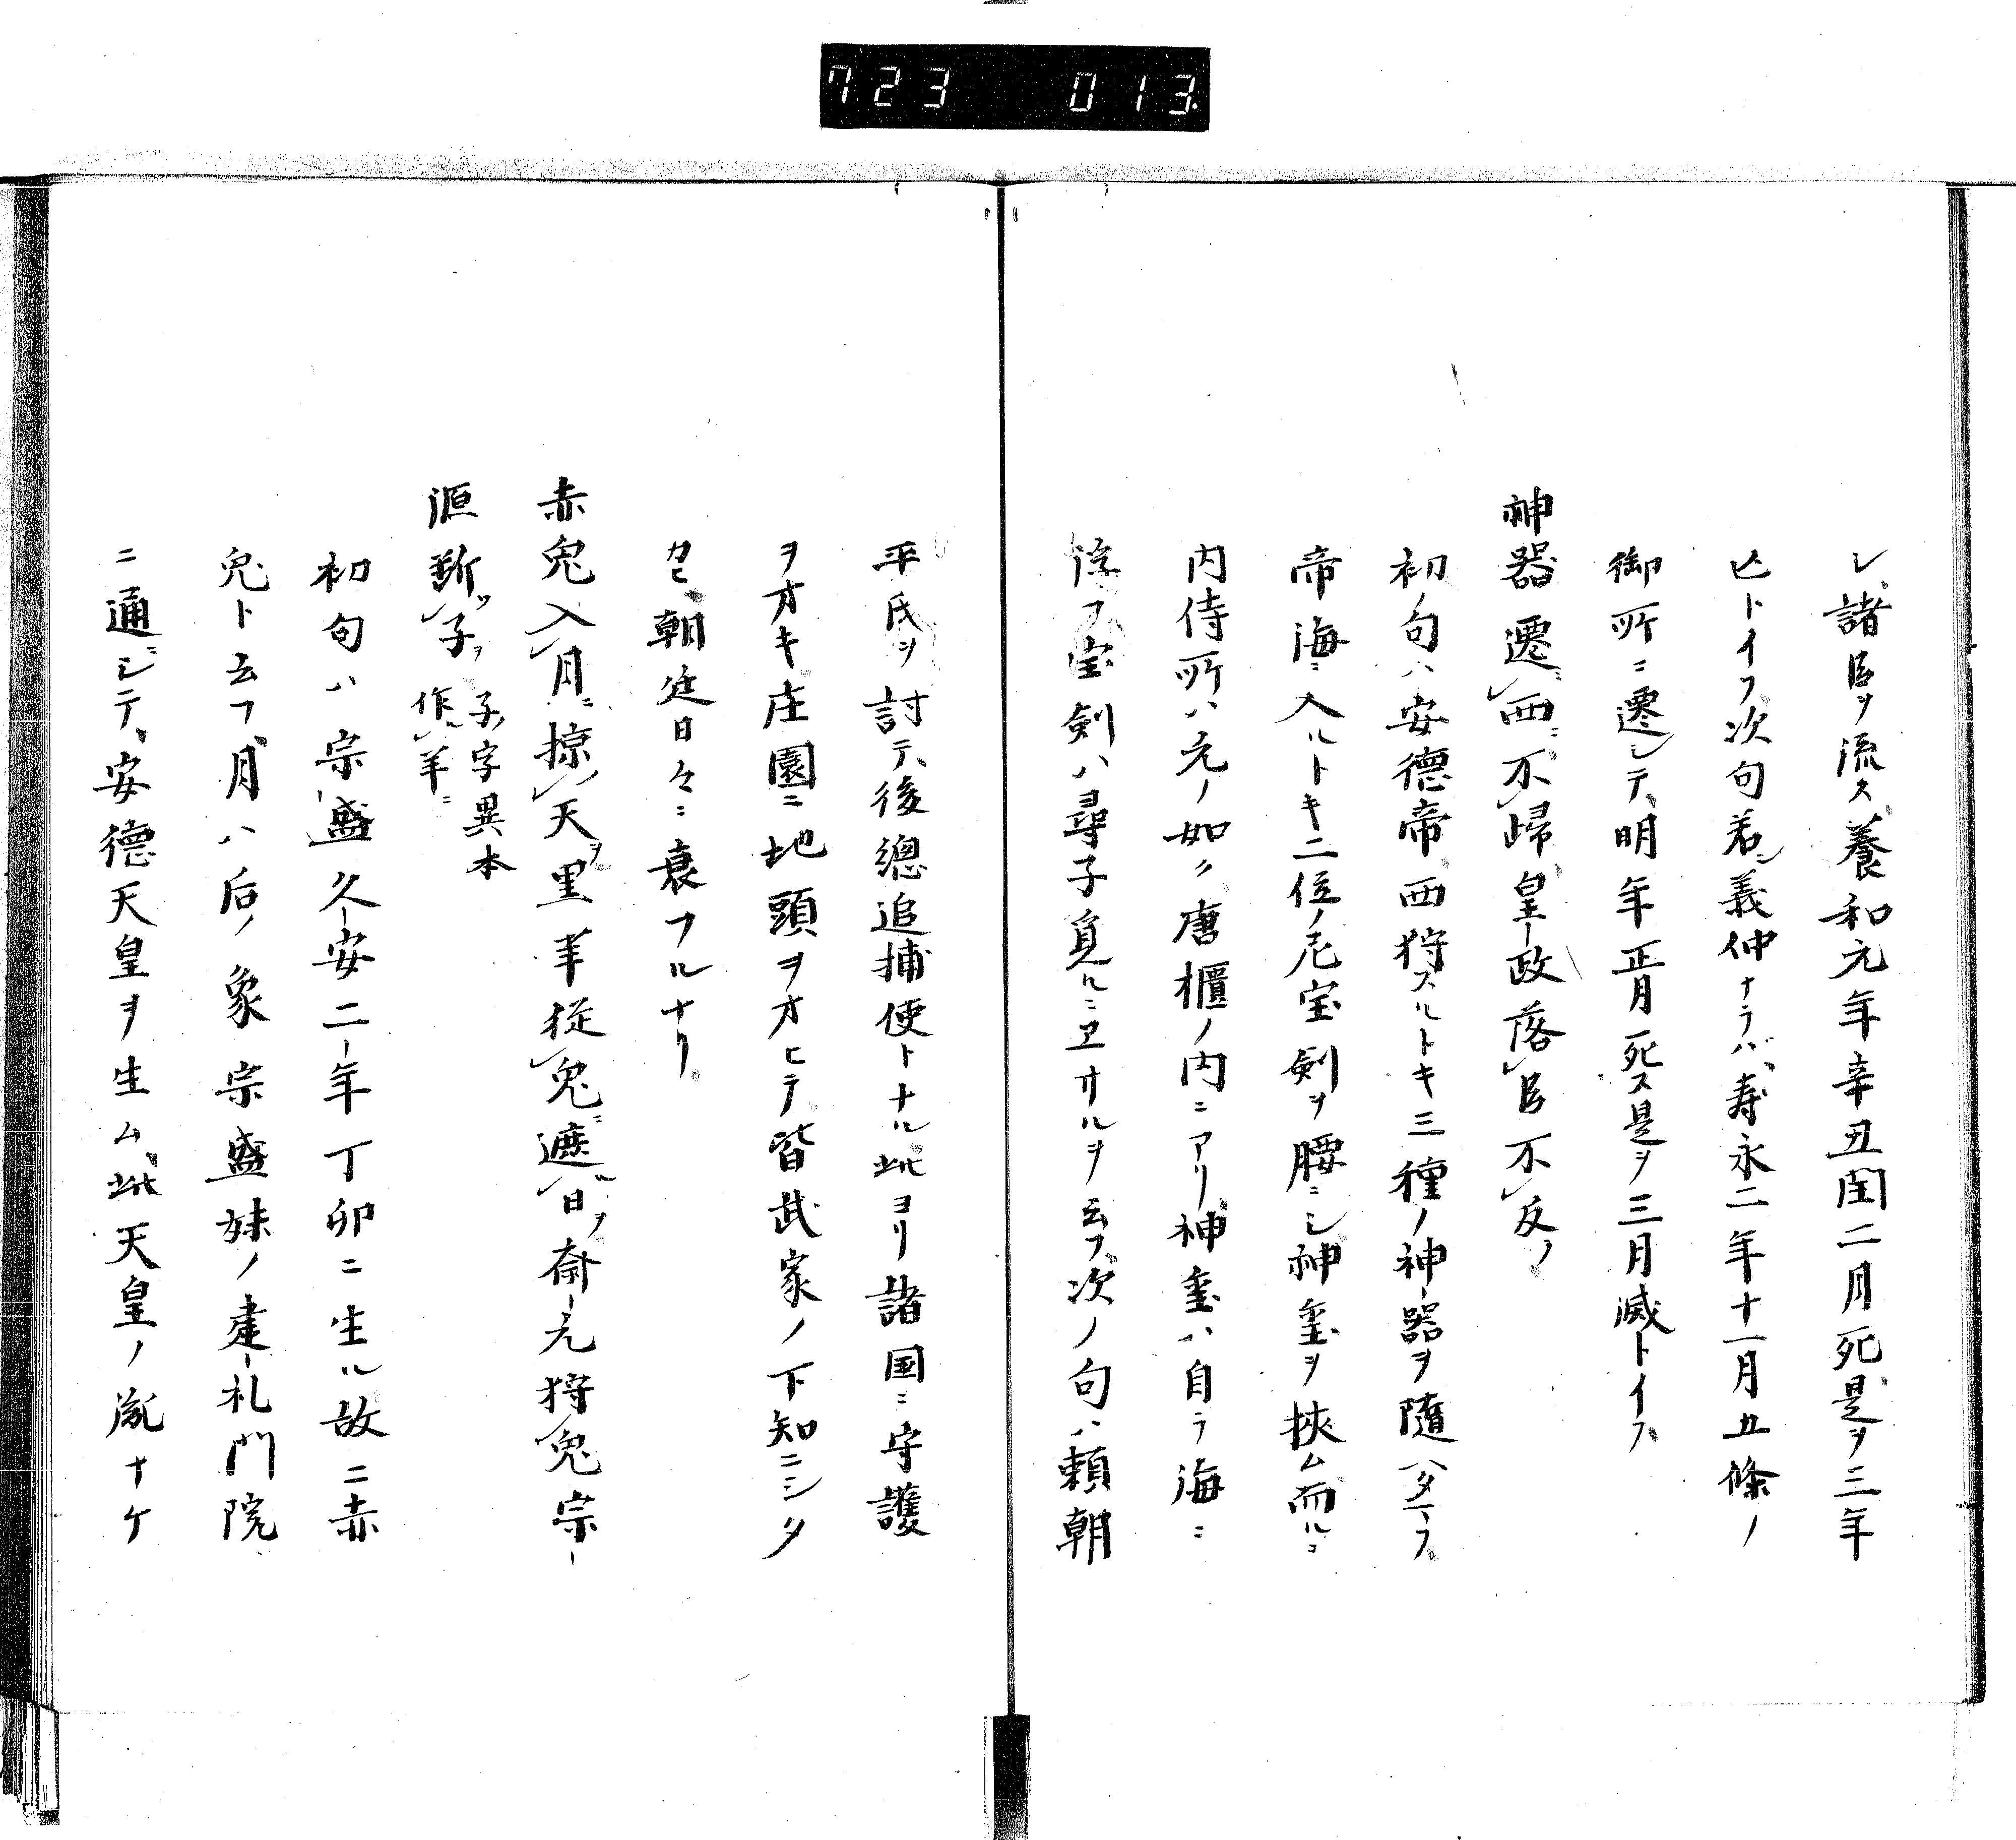 723 013
シ、諸臣ヲ流ス、養和元年辛丑閏二月死、是ヲ三年
亾トイフ、次句若シ義仲ナラバ、寿永二年十一月五條ノ
御所ニ遷シテ、明年正月死ス是ヲ三月滅トイフ、
神器遷西ニ不歸皇政落臣不反ノ
初ノ句ハ安德帝西狩スルトキ三種ノ神器ヲ隨ヘタマフ、
帝海ニ入ルトキ二位ノ尼宝剣ヲ腰ニシ神璽ヲ挾ム而ルニ
内侍所ハ元ノ如ク唐櫃ノ内ニアリ、神璽ハ自ラ海ニ
浮フ宝剣ハ尋子覓ルニヱサルヲ云フ、次ノ句ハ賴朝
平氏ヲ討テ、後總追捕使トナル此ヨリ諸国ニ守護
ヲオキ庄園ニ地頭ヲオヒテ皆武家ノ下知ニシタ
カヒ、朝廷日々ニ衰フルナリ、
赤兔入月ニ掠天ヲ里羊従兔ニ遮日ヲ斎元狩兔宗
源斷ツ子ヲ子ノ字異本
作ル羊ニ
初句ハ宗盛久安二年丁卯ニ生ル故ニ赤
兔ト云フ、月ハ后ノ象宗盛妹ノ建礼門院
ニ通ジテ、安德天皇ヲ生ム、此天皇ノ胤ナケ